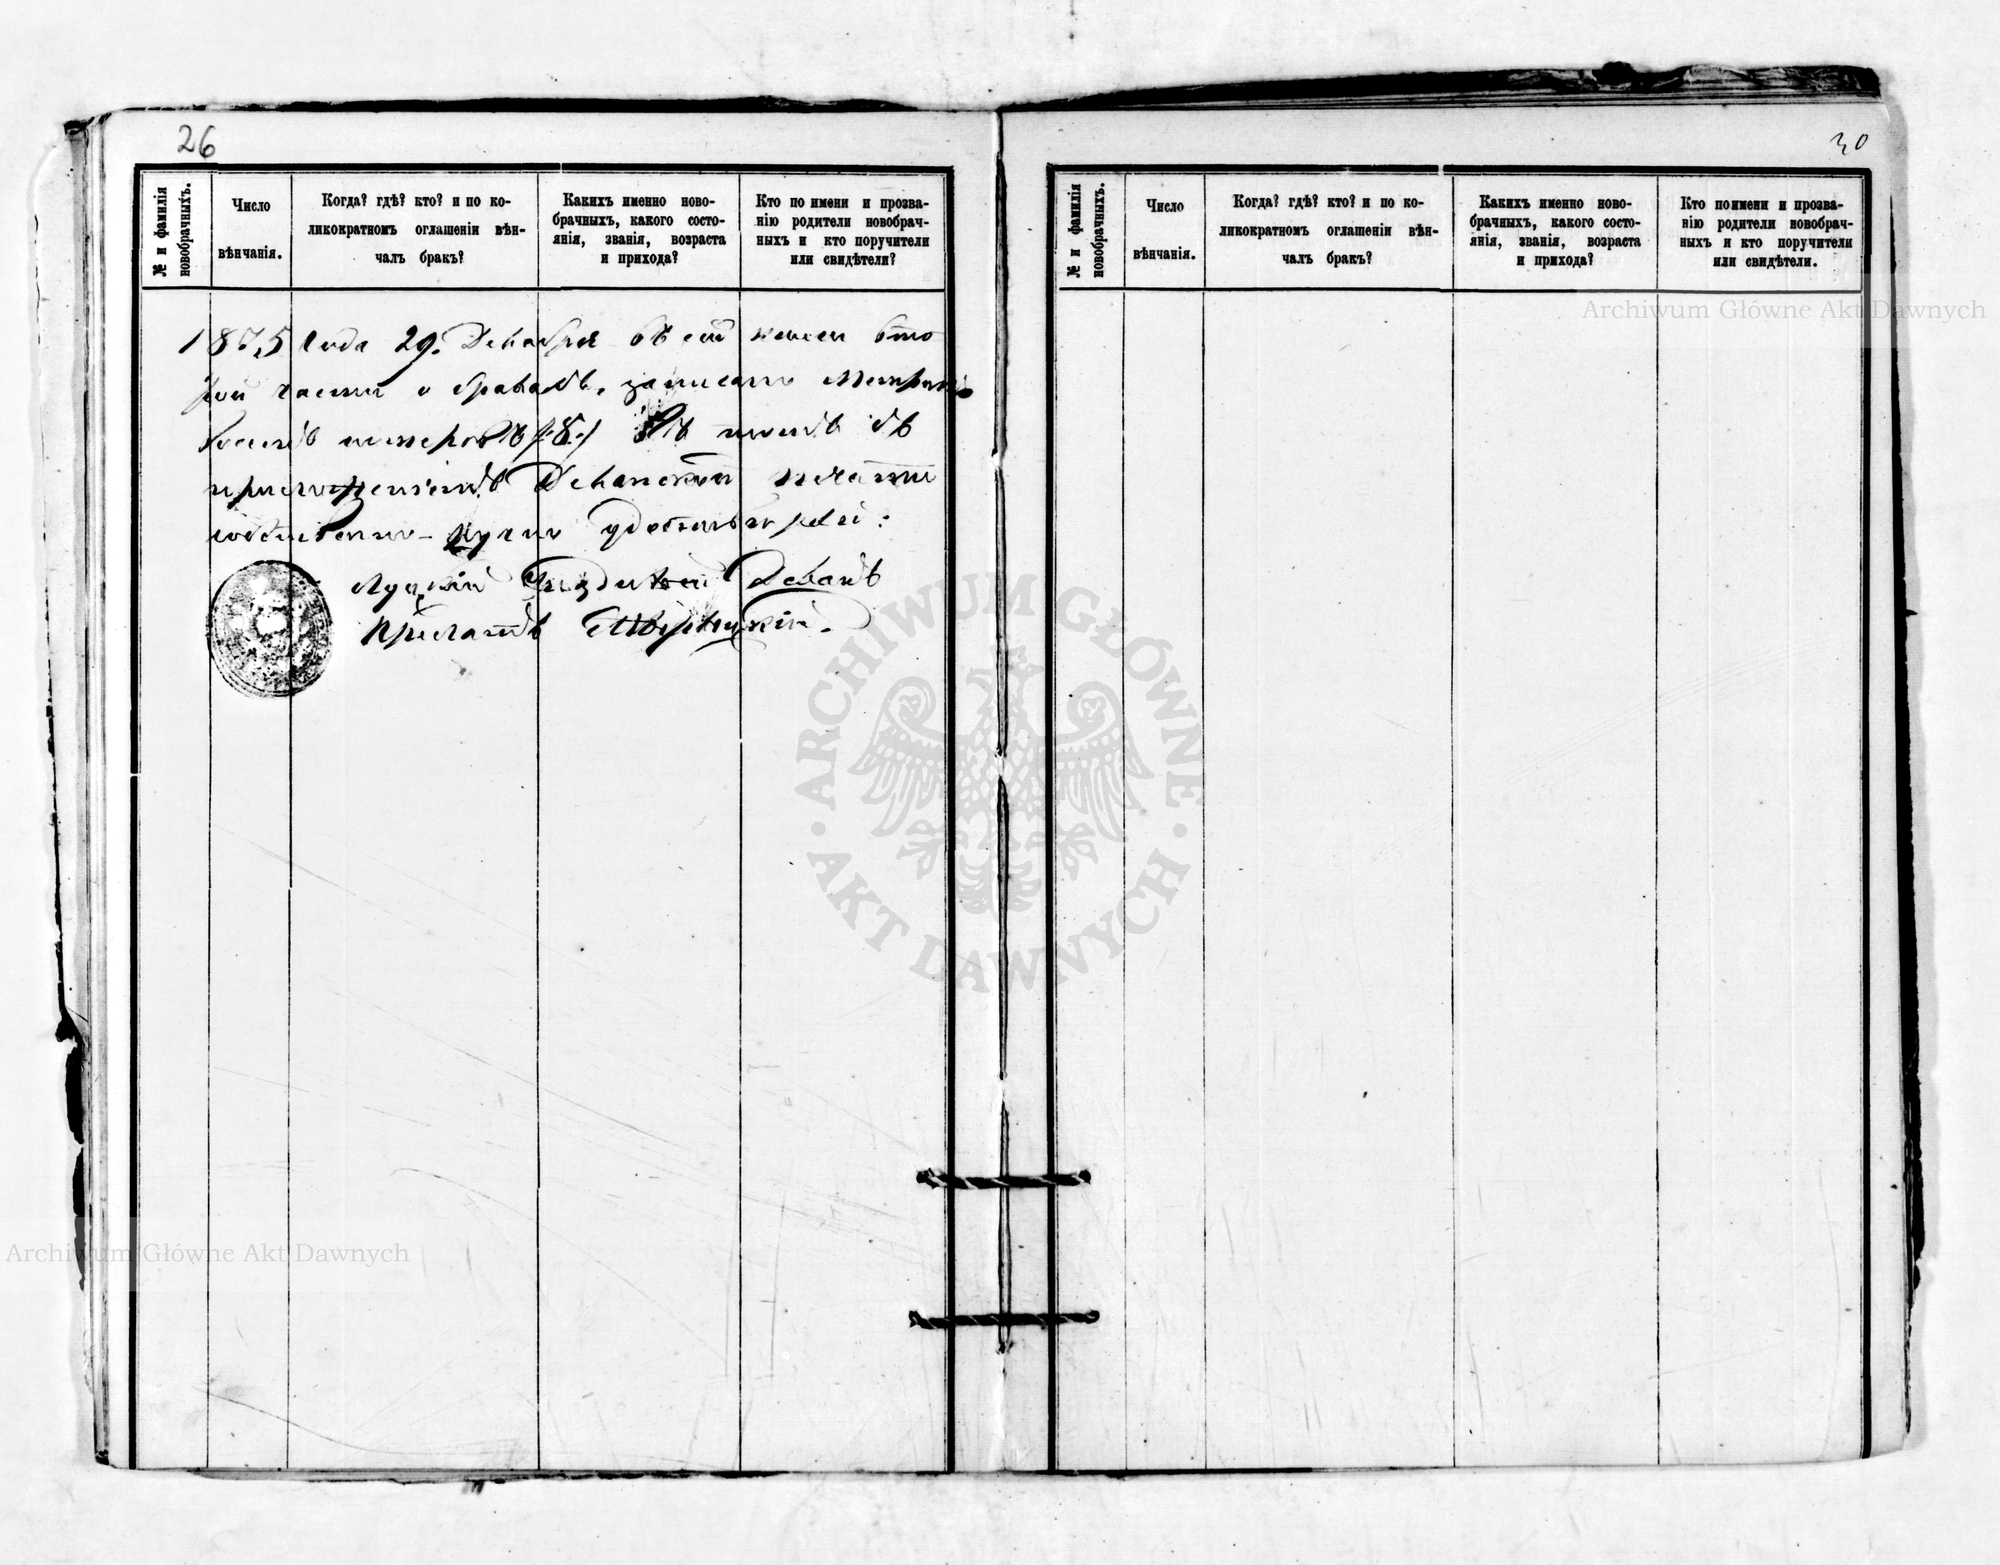 26
№ и фамилія
новобрачныхъ.
Число
вѣнчанія.
Когда? гдѣ? кто? и по ко-
ликократномъ оглашеніи вѣн-
чалъ бракъ?
Какихъ именно ново-
брачныхъ, какого состо-
янія, званія, возраста
и прихода?
Кто по имени и прозва-
нію родители новобрач-
ныхъ и кто поручители
или свидѣтели?
1875 года 29. Декабря въ сей книги вто
рой части о бракахъ, записано
номеровъ /8./ въ томъ съ
приложеніемъ Деканской печати
собственно-ручно удостовѣряю:
Луцкій Деканъ
Прелатъ
30
№ и фамилія
новобрачныхъ.
Число
вѣнчанія.
Когда? гдѣ? кто? и по ко-
ликократномъ оглашеніи вѣн-
чалъ бракъ?
Какихъ именно ново-
брачныхъ, какого состо-
янія, званія, возраста
и прихода?
Кто по имени и прозва-
нію родители новобрач-
ныхъ и кто поручители
или свидѣтели.
Archiwum Główne Akt Dawnych
ARCHIWUM GŁÓWNE
AKT DAWNYCH
Archiwum Główne Akt Dawnych